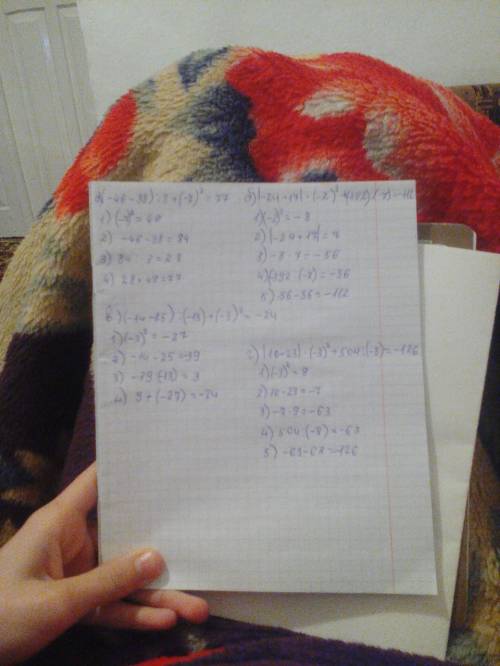 а) (-46-38):3+(-7)²=77
1) (-7)²=49
2) -46-38=84
3) 84:3=28
4) 28+49=77
б) |-24+17|·(-2)³+(392):(-7)=-112
1) (-2)³=-8
2) |-24+17|=7
3) -8·7=-56
4) (392:(-7)=-56
5) -56-56=-112
в) (-14-25):(-13)+(-3)³=-24
1) (-3)³=-27
2) -14-25=-39
3) -39:(-13)=3
4) 3+(-27)=-24
г) |16-23|·(-3)²+504:(-8)=-126
1) (-3)²=9
2) 16-23=-7
3) -7·9=-63
4) 504:(-8)=-63
5) -63-63=-126